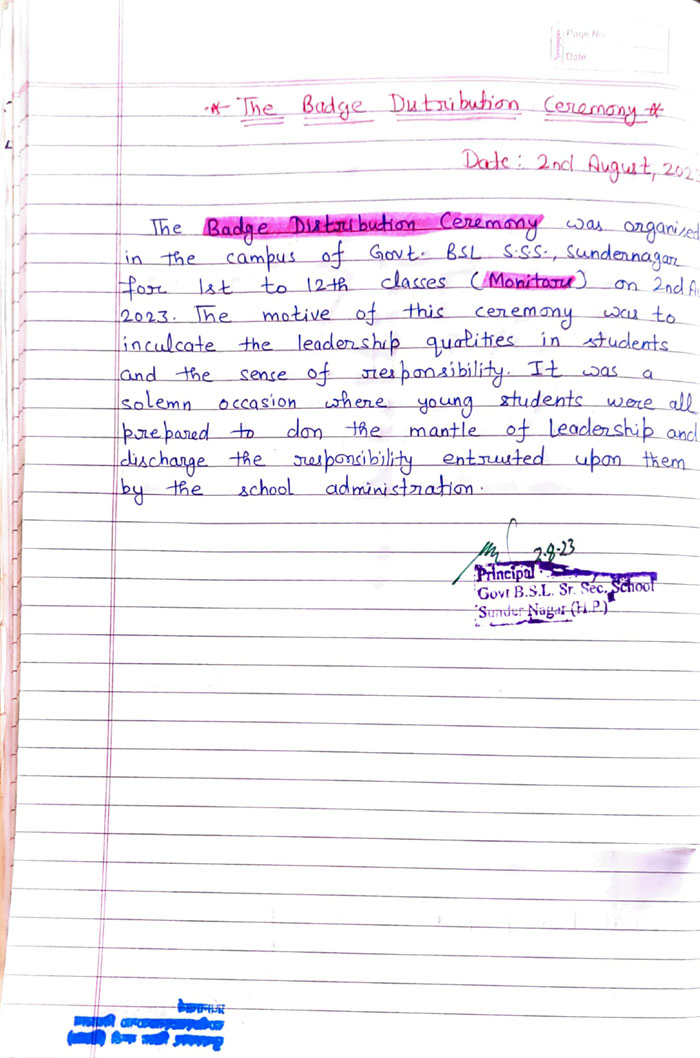 Page No.
Date
* The Badge Distribution Ceremony *
Date: 2nd August, 202
The Badge Distribution Ceremony was organised
in the campus of Govt. BSL S.S.S., Sundernagar
for 1st to 12th classes (Monitors) on 2nd A
2023. The motive of this ceremony was to
inculcate the leadership qualities in students
and the sense of responsibility. It was a
solemn occasion where young students were all
prepared to don the mantle of leadership and
discharge the responsibility entrusted upon them
by the school administration.
2-8-23
Principal
Govt B.S.L. Sr. Sec. School
Sunder Nagar (H.P.)